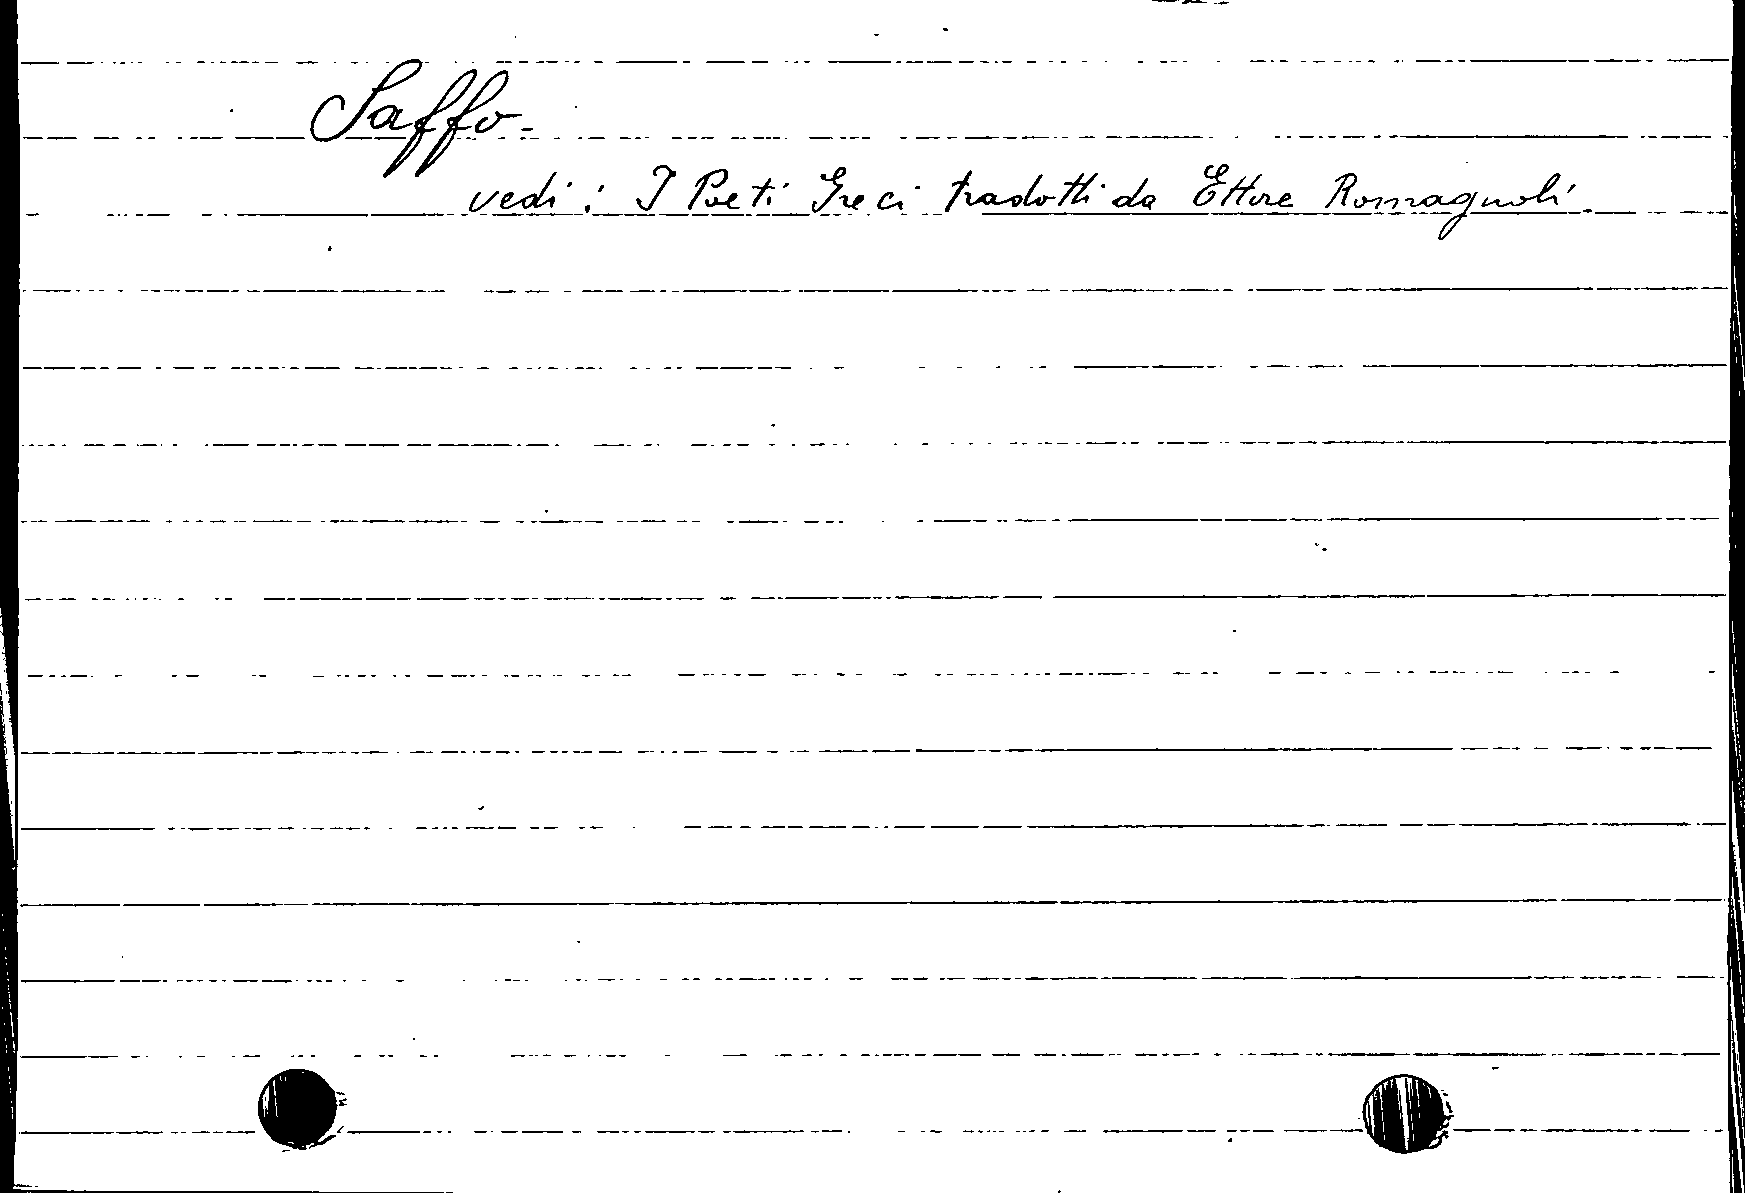 Saffo-
vedi: I Poeti Greci tradotti da Ettore Romagnoli.